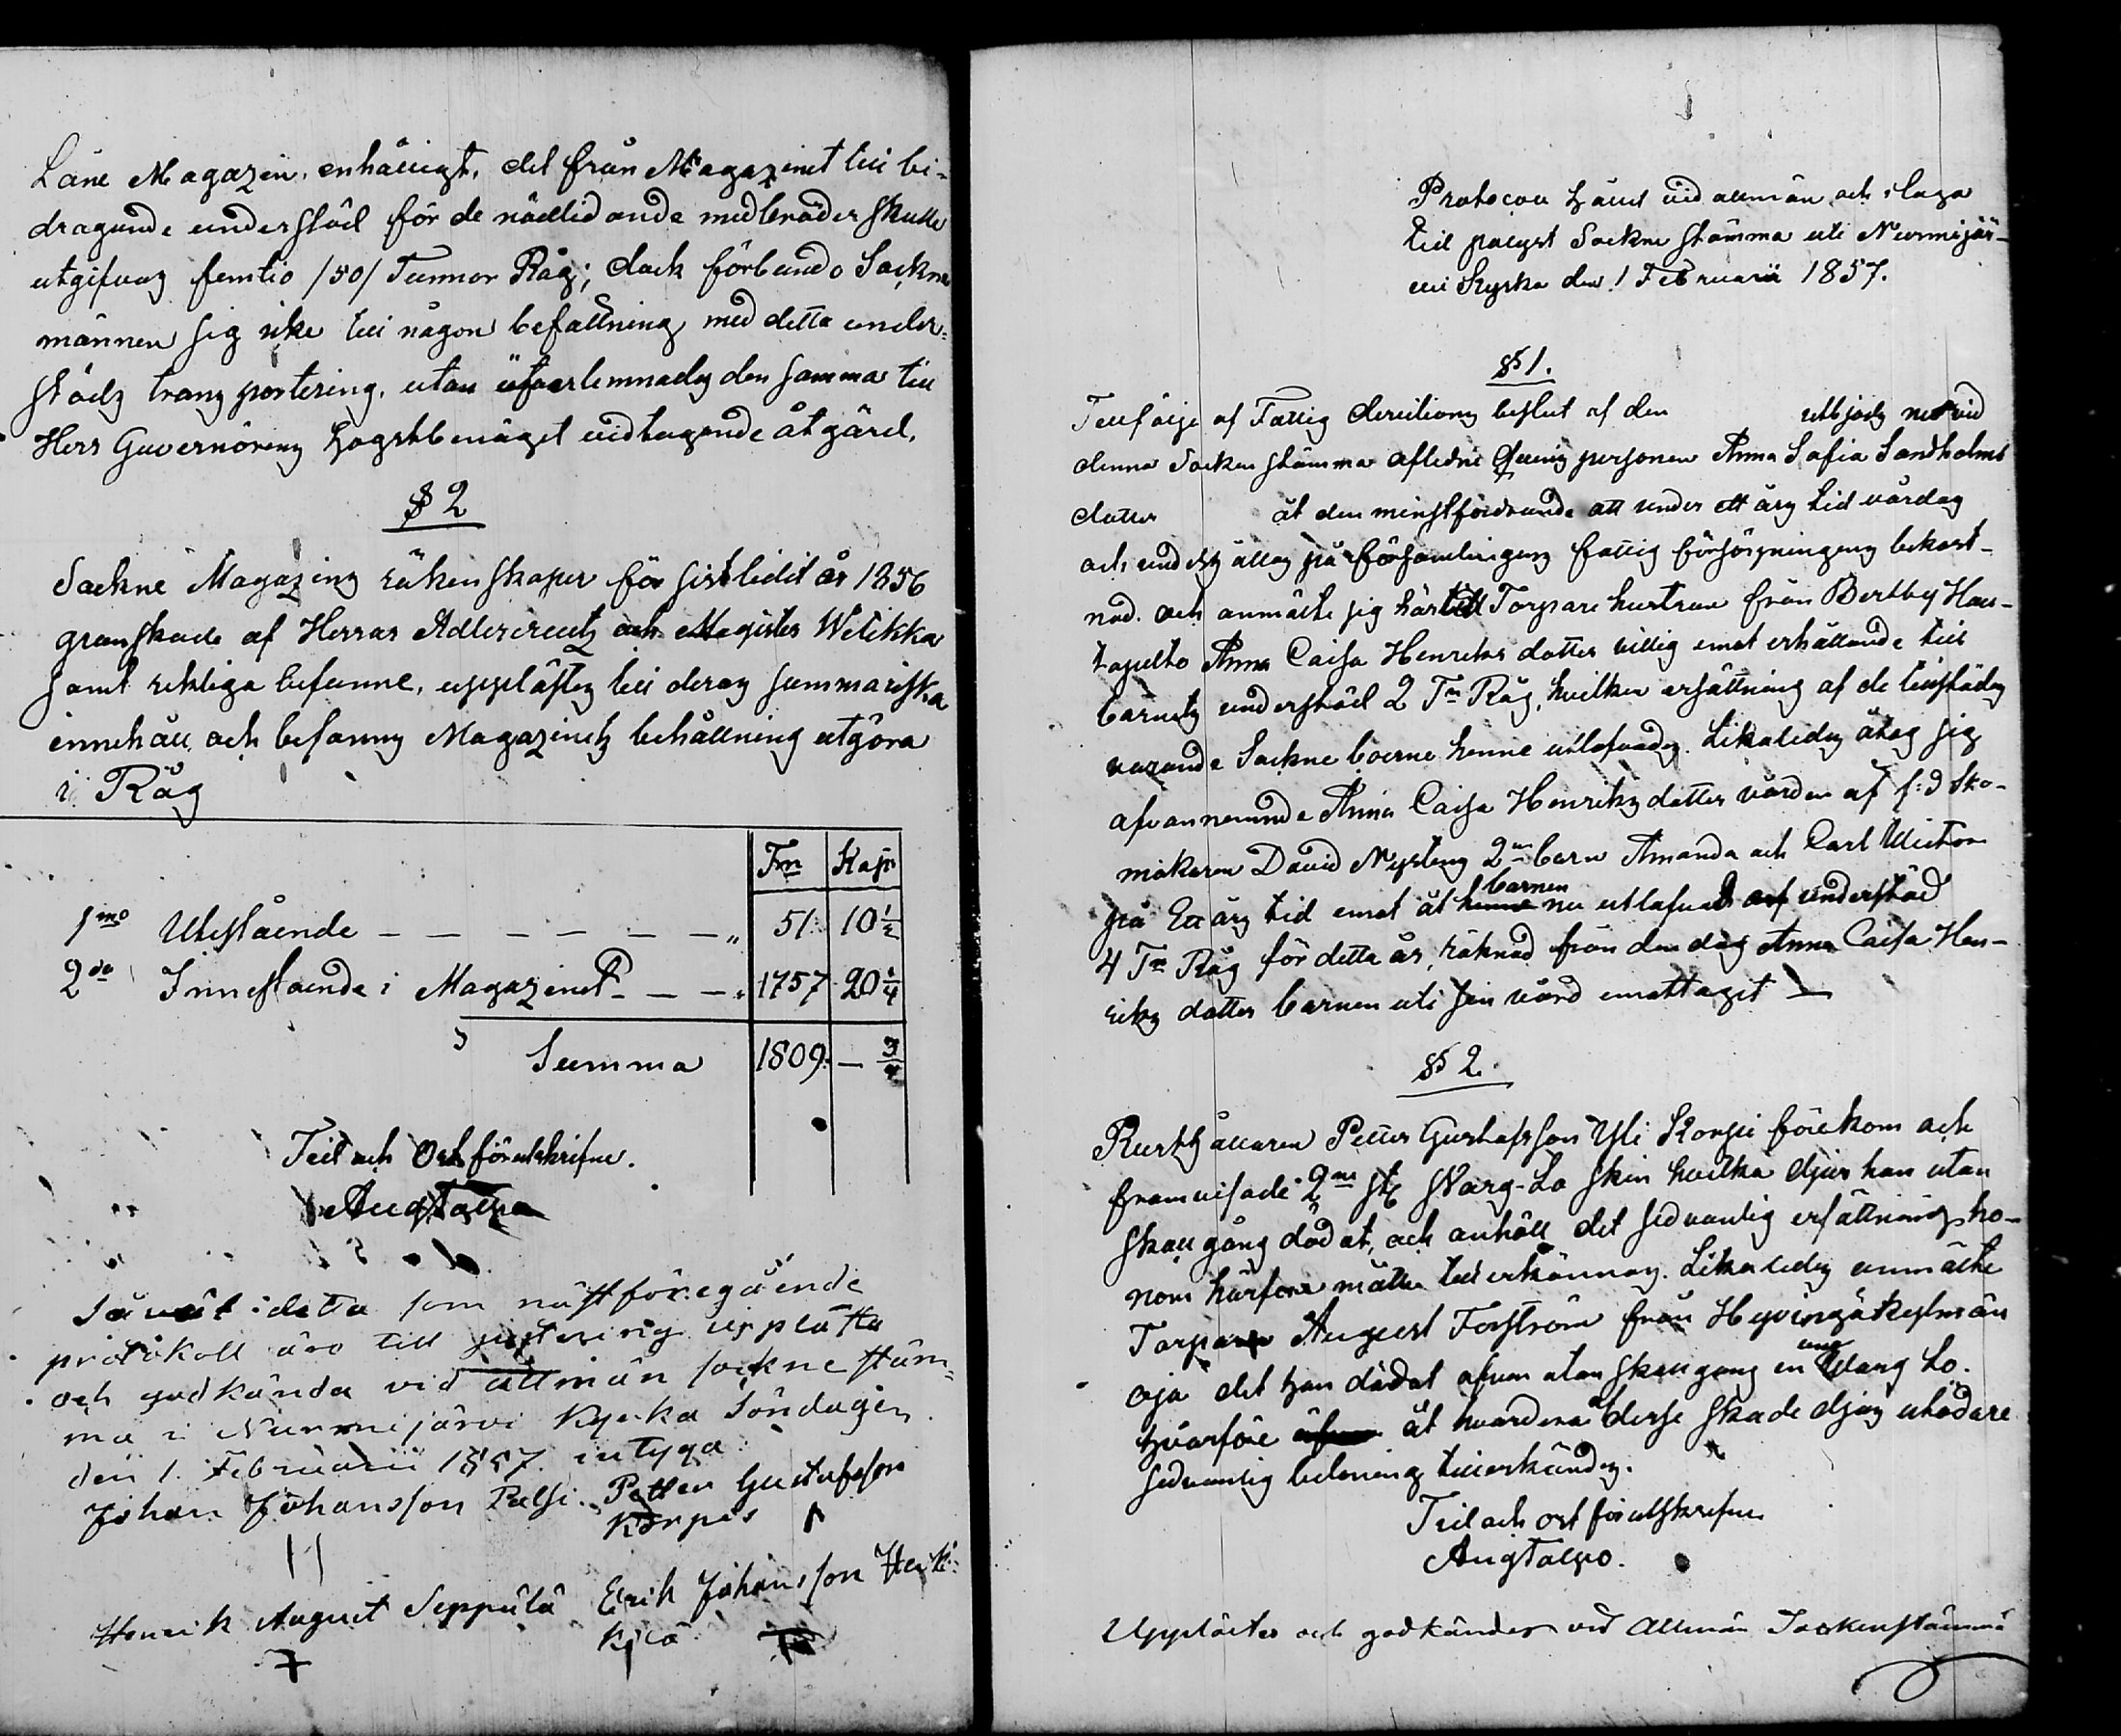 Låne Magazin, enhälligt, det från Magazinet till bi-
dragande understöd för de nödlidande medbröder skulle
utgifvas femtio /50/ Tunnor Råg; dock förbundo Sockne
männen sig icke till någon befattning med detta under-
stöds transportering, utan öfverlemnades den samma till
Herr Guvernörens högstbenäget vidtagande åtgärd.
§ 2
Sockne Magazins räkenskaper för sistledit år 1856
granskade af Herrar Adlercreutz och Magister Welikka
samt riktiga befunne, upplästes till deras summariska
innehåll, och befanns Magazinets behållning utgöra
i Råg
Tnr Kapr
1mo Utestående — — — — — — „ 51. 10 1/2
2do Innestående i Magazinet — — — „ 1757 20 1/4
Summa 1809. — 3/4
Tid och Ort förutskrifne.
Aug Talpo
Såväl detta som nästföregående
protokoll äro till justering upplästa
och godkända vid allmän sockne stäm-
ma i Nurmijärvi Kyrka Söndagen
den 1. Februarii 1857. intyga
Johan Johansson Palsi. Petter Gustafsson
Korpis
Henrik August Seppälä Erik Johansson
Kylä
Protocoll hållit vid allmän och i laga
tid pålyst Sockne stämma uti Nurmijär-
vi Kyrka den 1 Februarii 1857.
§ 1.
Till följe af Fattig directions beslut af den utbjöds nu vid
denna Socken stämma aflidne personen Anna Safia Sandholms
dotter åt den minstfordrande att under ett års tid vårdas
och underhållas på församlingens fattig försörjnings bekost-
nad. och anmälte sig härtill Torpare hustrun från Bertby Hau-
tapelto Anna Caisa Henriks dotter villig emot erhållande till
barnets understöd 2 Tnr Råg, hvilken ersättning af de tillstädes
varande Sockne boerne henne utlofvades. Likaledes åtog sig
ofvannemnde Anna Caisa Henriks dotter vården af f:d Sko-
makaren David Nyst 2ne barn Amanda och Carl Victor
på Ett års tid emot åt barnen nu utlofvadt understöd
4 Tnr Råg för detta år, räknad från den dag Anna Caisa Hen-
riks dotter barnen uti sin vård emottagit —
§ 2.
Rusthållaren Petter Gustafsson Yli Korpi förekom och
framvisade 2ne st Warg-Lo skin hvilka djur han utan
skallgång dödat, och anhöll det sedvanlig ersättning ho-
nom härföre måtte tillerkännas. Likaledes anmälte
Torparen August Forström från Hyvingä Kylmän
oja det han dödat äfven utan skallgång en ung Warg Lo.
hvarföre åt hvardera af desse skade djurs utödare
sedvanlig belöning tillerkändes.
Tid och ort förutskrifne
Aug Talpo.
Upplästes och godkändes vid Allmän Sockenstämma